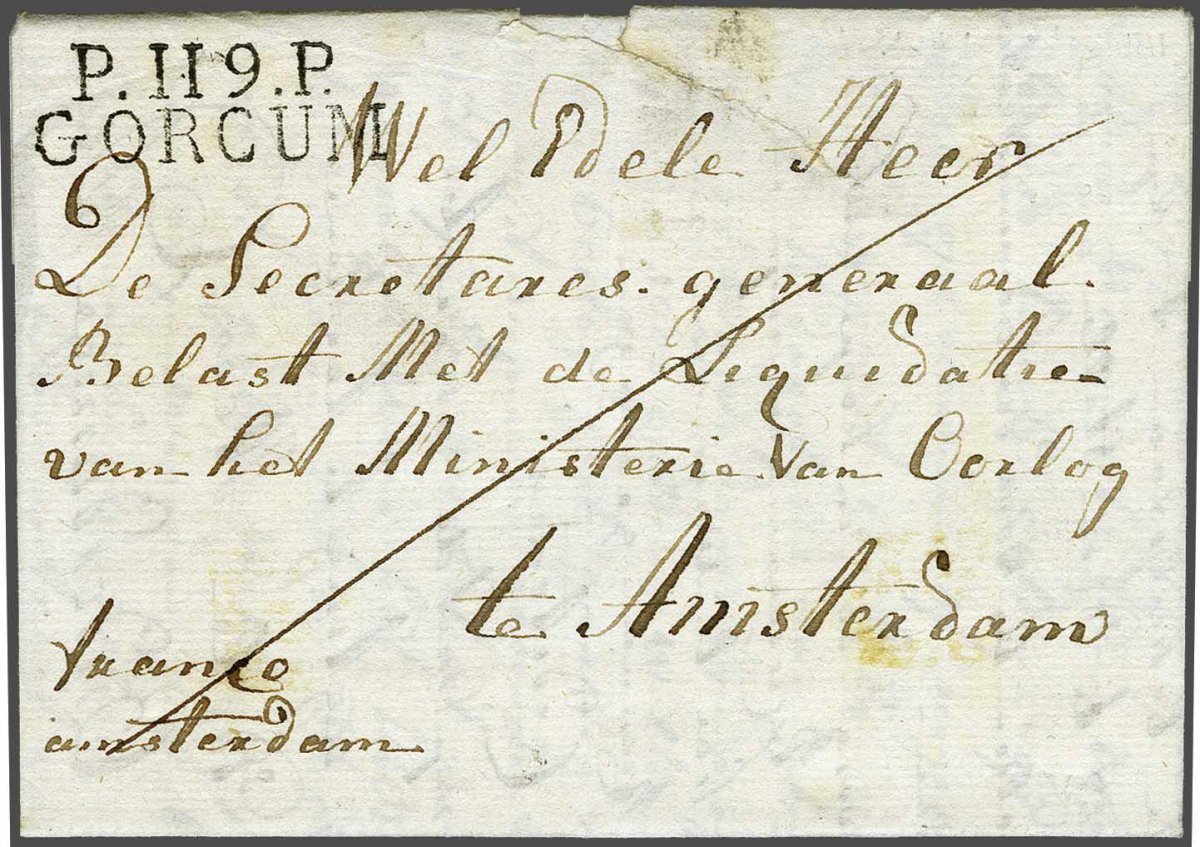 P.119.P.
GORCUM
Wel Edele Heer
De Secretares. generaal.
Belast Met de Liquidatie
van het Ministerie Van Oorlog
te Amsterdam
franco
amsterdam